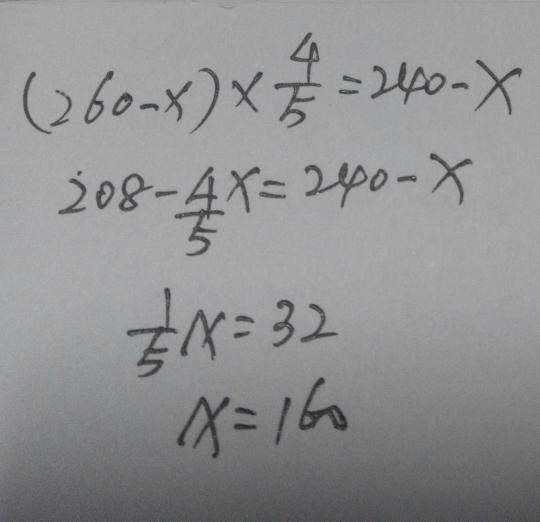 (260-x)×4/5=240-x
208-4/5x=240-x
1/5x=32
x=160